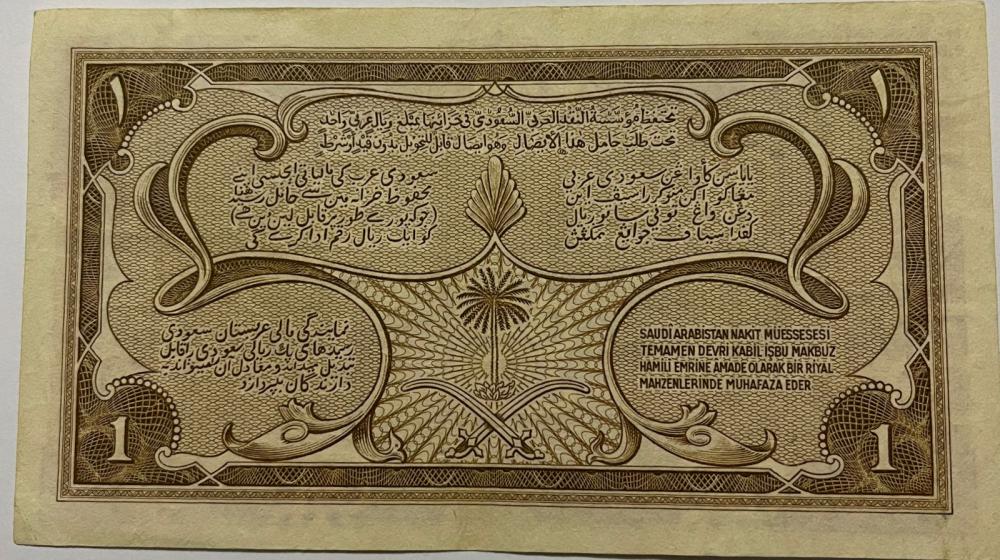 ١ ١
تحتفظ مؤسسة النقد العربي السعودي في خزائنها بمبلغ ريال عربي واحد
تحت طلب حامل هذا الايصال وهو ايصال قابل للتحويل بدون قيد أو شرط
سعودي عربي
ريال
سعودی عرب کی مالیاتی ایجنسی اپنے
محفوظ خزانہ میں سے حامل رسید ھذا
(جو کہ پورے طور پر قابل لین دین ھے)
کو ایک ریال رقم ادا کرے گی
نمایندگی مالی عربستان سعودی
رسیدهای یک ریالی سعودی را قابل
تبدیل میداند و معادل آن میتواند به
دارندگان بپردازد
SAUDİ ARABİSTAN NAKIT MÜESSESESİ
TEMAMEN DEVRİ KABİL İŞBU MAKBUZ
HAMİLİ EMRİNE AMADE OLARAK BİR RİYAL
MAHZENLERİNDE MUHAFAZA EDER
1 1